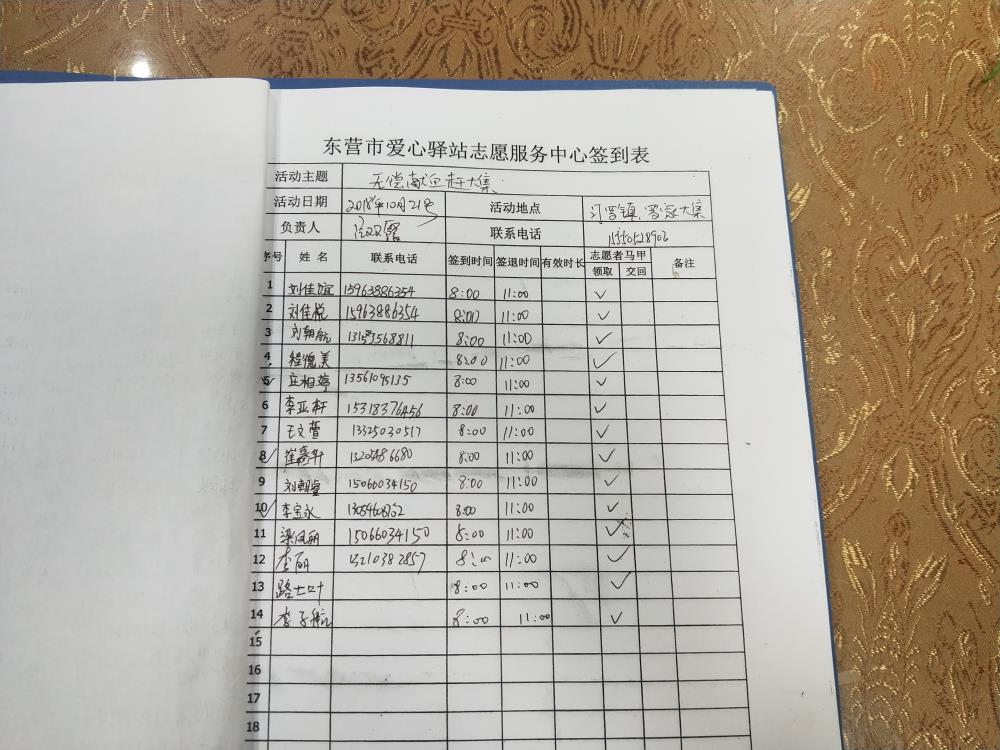 东营市爱心驿站志愿服务中心签到表
活动主题 无偿献血赶大集
活动日期 2018年10月21号 活动地点 大集
负责人 联系电话
序号 姓名 联系电话 签到时间 签退时间 有效时长 志愿者马甲 备注
领取 交回
1 刘佳谊 15963886354 8:00 11:00 ✓
2 刘佳悦 15963886354 8:00 11:00 ✓
3 刘朝航 8:00 11:00 ✓
4 程德美 8:00 11:00 ✓
5 13561095135 8:00 11:00 ✓
6 李亚轩 15318376456 8:00 11:00 ✓
7 王文萱 13325030517 8:00 11:00 ✓
8 8:00 11:00 ✓
9 15066034150 8:00 11:00 ✓
10 李宝永 8:00 11:00 ✓
11 梁凤丽 15066034150 8:00 11:00 ✓
12 李丽 13210382857 8:00 11:00 ✓
13 路士叶 8:00 11:00 ✓
14 李子航 8:00 11:00 ✓
15
16
17
18